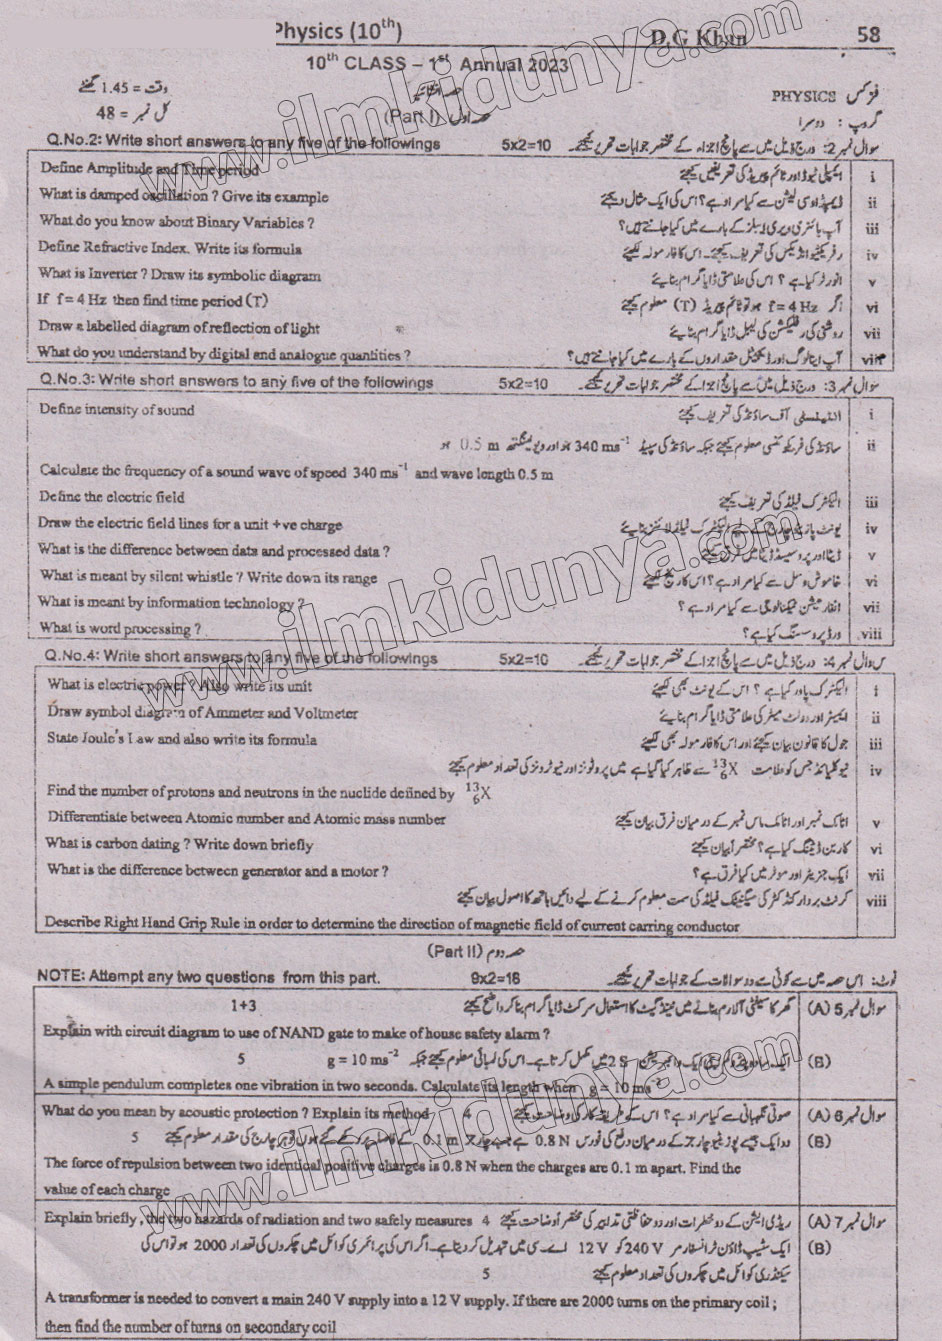 Physics (10th) D.G Khan 58
10th CLASS – 1st Annual 2023
وقت = 1.45 گھنٹے حصہ انشائیہ PHYSICS فزکس
کل نمبر = 48 حصہ اول (Part I) گروپ : دوسرا
Q.No.2: Write short answers to any five of the followings 5x2=10 سوال نمبر 2: درج ذیل میں سے پانچ اجزاء کے مختصر جوابات تحریر کیجئے۔
Define Amplitude and Time period ایمپلی ٹیوڈ اور ٹائم پیریڈ کی تعریفیں کیجئے i
What is damped oscillation ? Give its example ڈیمپڈ اوسی لیشن سے کیا مراد ہے؟ اس کی ایک مثال دیجئے ii
What do you know about Binary Variables ? آپ بائنری ویری ایبلز کے بارے میں کیا جانتے ہیں؟ iii
Define Refractive Index. Write its formula رفریکٹیو انڈیکس کی تعریف کیجئے۔ اس کا فارمولہ لکھئے iv
What is Inverter ? Draw its symbolic diagram انورٹر کیا ہے ؟ اس کی علامتی ڈایا گرام بنایئے v
If f = 4 Hz then find time period (T) اگر f = 4 Hz ہو تو ٹائم پیریڈ (T) معلوم کیجئے vi
Draw a labelled diagram of reflection of light روشنی کی رفلیکشن کی لیبل ڈایا گرام بنایئے vii
What do you understand by digital and analogue quantities ? آپ اینالوگ اور ڈیجیٹل مقداروں کے بارے میں کیا جانتے ہیں؟ viii
Q.No.3: Write short answers to any five of the followings 5x2=10 سوال نمبر 3: درج ذیل میں سے پانچ اجزاء کے مختصر جوابات تحریر کیجئے۔
Define intensity of sound انٹینسٹی آف ساؤنڈ کی تعریف کیجئے i
ساؤنڈ کی فریکوئنسی معلوم کیجئے جبکہ ساؤنڈ کی سپیڈ 340 ms⁻¹ ہو اور ویولینگتھ 0.5 m ہو ii
Calculate the frequency of a sound wave of speed 340 ms⁻¹ and wave length 0.5 m
Define the electric field الیکٹرک فیلڈ کی تعریف کیجئے iii
Draw the electric field lines for a unit +ve charge یونٹ پازیٹو چارج کے لیے الیکٹرک فیلڈ لائنز بنایئے iv
What is the difference between data and processed data ? ڈیٹا اور پروسیسڈ ڈیٹا میں فرق کیجئے v
What is meant by silent whistle ? Write down its range خاموش وسل سے کیا مراد ہے؟ اس کا رینج لکھئے vi
What is meant by information technology ? انفارمیشن ٹیکنالوجی سے کیا مراد ہے ؟ vii
What is word processing ? ورڈ پروسسنگ کیا ہے؟ viii
Q.No.4: Write short answers to any five of the followings 5x2=10 سوال نمبر 4: درج ذیل میں سے پانچ اجزاء کے مختصر جوابات تحریر کیجئے۔
What is electric power ? Also write its unit الیکٹرک پاور کیا ہے ؟ اس کے یونٹ بھی لکھئے i
Draw symbol diagram of Ammeter and Voltmeter ایمیٹر اور وولٹ میٹر کی علامتی ڈایا گرام بنایئے ii
State Joule's Law and also write its formula جول کا قانون بیان کیجئے اور اس کا فارمولہ بھی لکھئے iii
نیوکلیائیڈ جس کو علامت ¹³₆X سے ظاہر کیا گیا ہے میں پروٹونز اور نیوٹرونز کی تعداد معلوم کیجئے iv
Find the number of protons and neutrons in the nuclide defined by ¹³₆X
Differentiate between Atomic number and Atomic mass number اٹامک نمبر اور اٹامک ماس نمبر کے درمیان فرق بیان کیجئے v
What is carbon dating ? Write down briefly کاربن ڈیٹنگ کیا ہے؟ مختصراً بیان کیجئے vi
What is the difference between generator and a motor ? ایک جنریٹر اور موٹر میں کیا فرق ہے؟ vii
کرنٹ بردار کنڈکٹر کی میگنیٹک فیلڈ کی سمت معلوم کرنے کے لیے دائیں ہاتھ کا اصول بیان کیجئے viii
Describe Right Hand Grip Rule in order to determine the direction of magnetic field of current carring conductor
حصہ دوم (Part II)
NOTE: Attempt any two questions from this part. 9x2=18 نوٹ: اس حصہ میں سے کوئی سے دو سوالات کے جوابات تحریر کیجئے۔
1+3 گھر کا سیفٹی آلارم بنانے میں نینڈ گیٹ کا استعمال سرکٹ ڈایا گرام بنا کر واضح کیجئے (A) سوال نمبر 5
Explain with circuit diagram to use of NAND gate to make of house safety alarm ?
5 g = 10 ms⁻² ایک سادہ پنڈولم اپنی ایک وائبریشن 2 S میں مکمل کرتا ہے۔ اس کی لمبائی معلوم کیجئے جبکہ (B)
A simple pendulum completes one vibration in two seconds. Calculate its length when g = 10 ms⁻²
What do you mean by acoustic protection ? Explain its method 4 صوتی نگہبانی سے کیا مراد ہے ؟ اس کے طریقہ کار کی وضاحت کیجئے (A) سوال نمبر 6
5 دو ایک جیسے پوزیٹیو چارجز کے درمیان دفع کی فورس 0.8 N ہے جب چارجز 0.1 m کے فاصلہ پر رکھے گئے ہوں تو ہر چارج کی مقدار معلوم کیجئے (B)
The force of repulsion between two identical positive charges is 0.8 N when the charges are 0.1 m apart. Find the
value of each charge
Explain briefly , the two hazards of radiation and two safely measures 4 ریڈی ایشن کے دو خطرات اور دو حفاظتی تدابیر کی مختصر اً وضاحت کیجئے (A) سوال نمبر 7
ایک سٹیپ ڈاؤن ٹرانسفارمر 240 V کو 12 V اے۔سی میں تبدیل کر دیتا ہے۔ اگر اس کی پرائمری کوائل میں چکروں کی تعداد 2000 ہو تو اس کی (B)
5 سیکنڈری کوائل میں چکروں کی تعداد معلوم کیجئے
A transformer is needed to convert a main 240 V supply into a 12 V supply. If there are 2000 turns on the primary coil ;
then find the number of turns on secondary coil
www.ilmkidunya.com
www.ilmkidunya.com
www.ilmkidunya.com